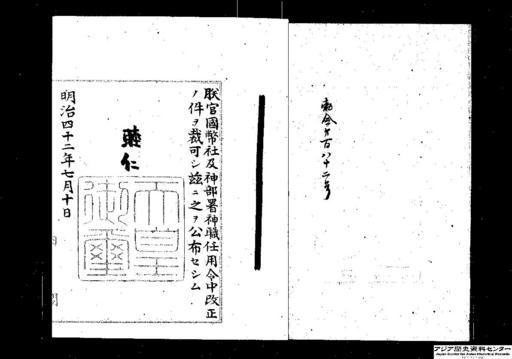 勅令第百八十二号
朕官國幣社及神部署神職任用令中改正
ノ件ヲ裁可シ玆ニ之ヲ公布セシム
睦仁
天皇
御璽
明治四十二年七月十日
アジア歴史資料センター
Japan Center for Asian Historical Records